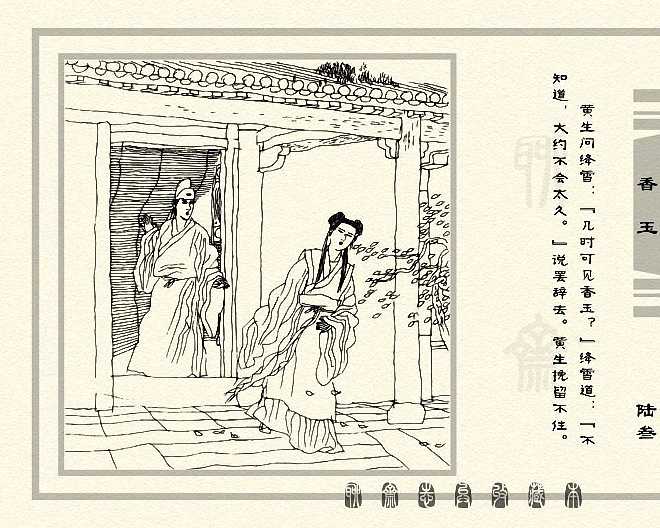 黄生问绛雪：“几时可见香玉？”绛雪道：“不
知道，大约不会太久。”说罢辞去。黄生挽留不住。
香玉
陆叁